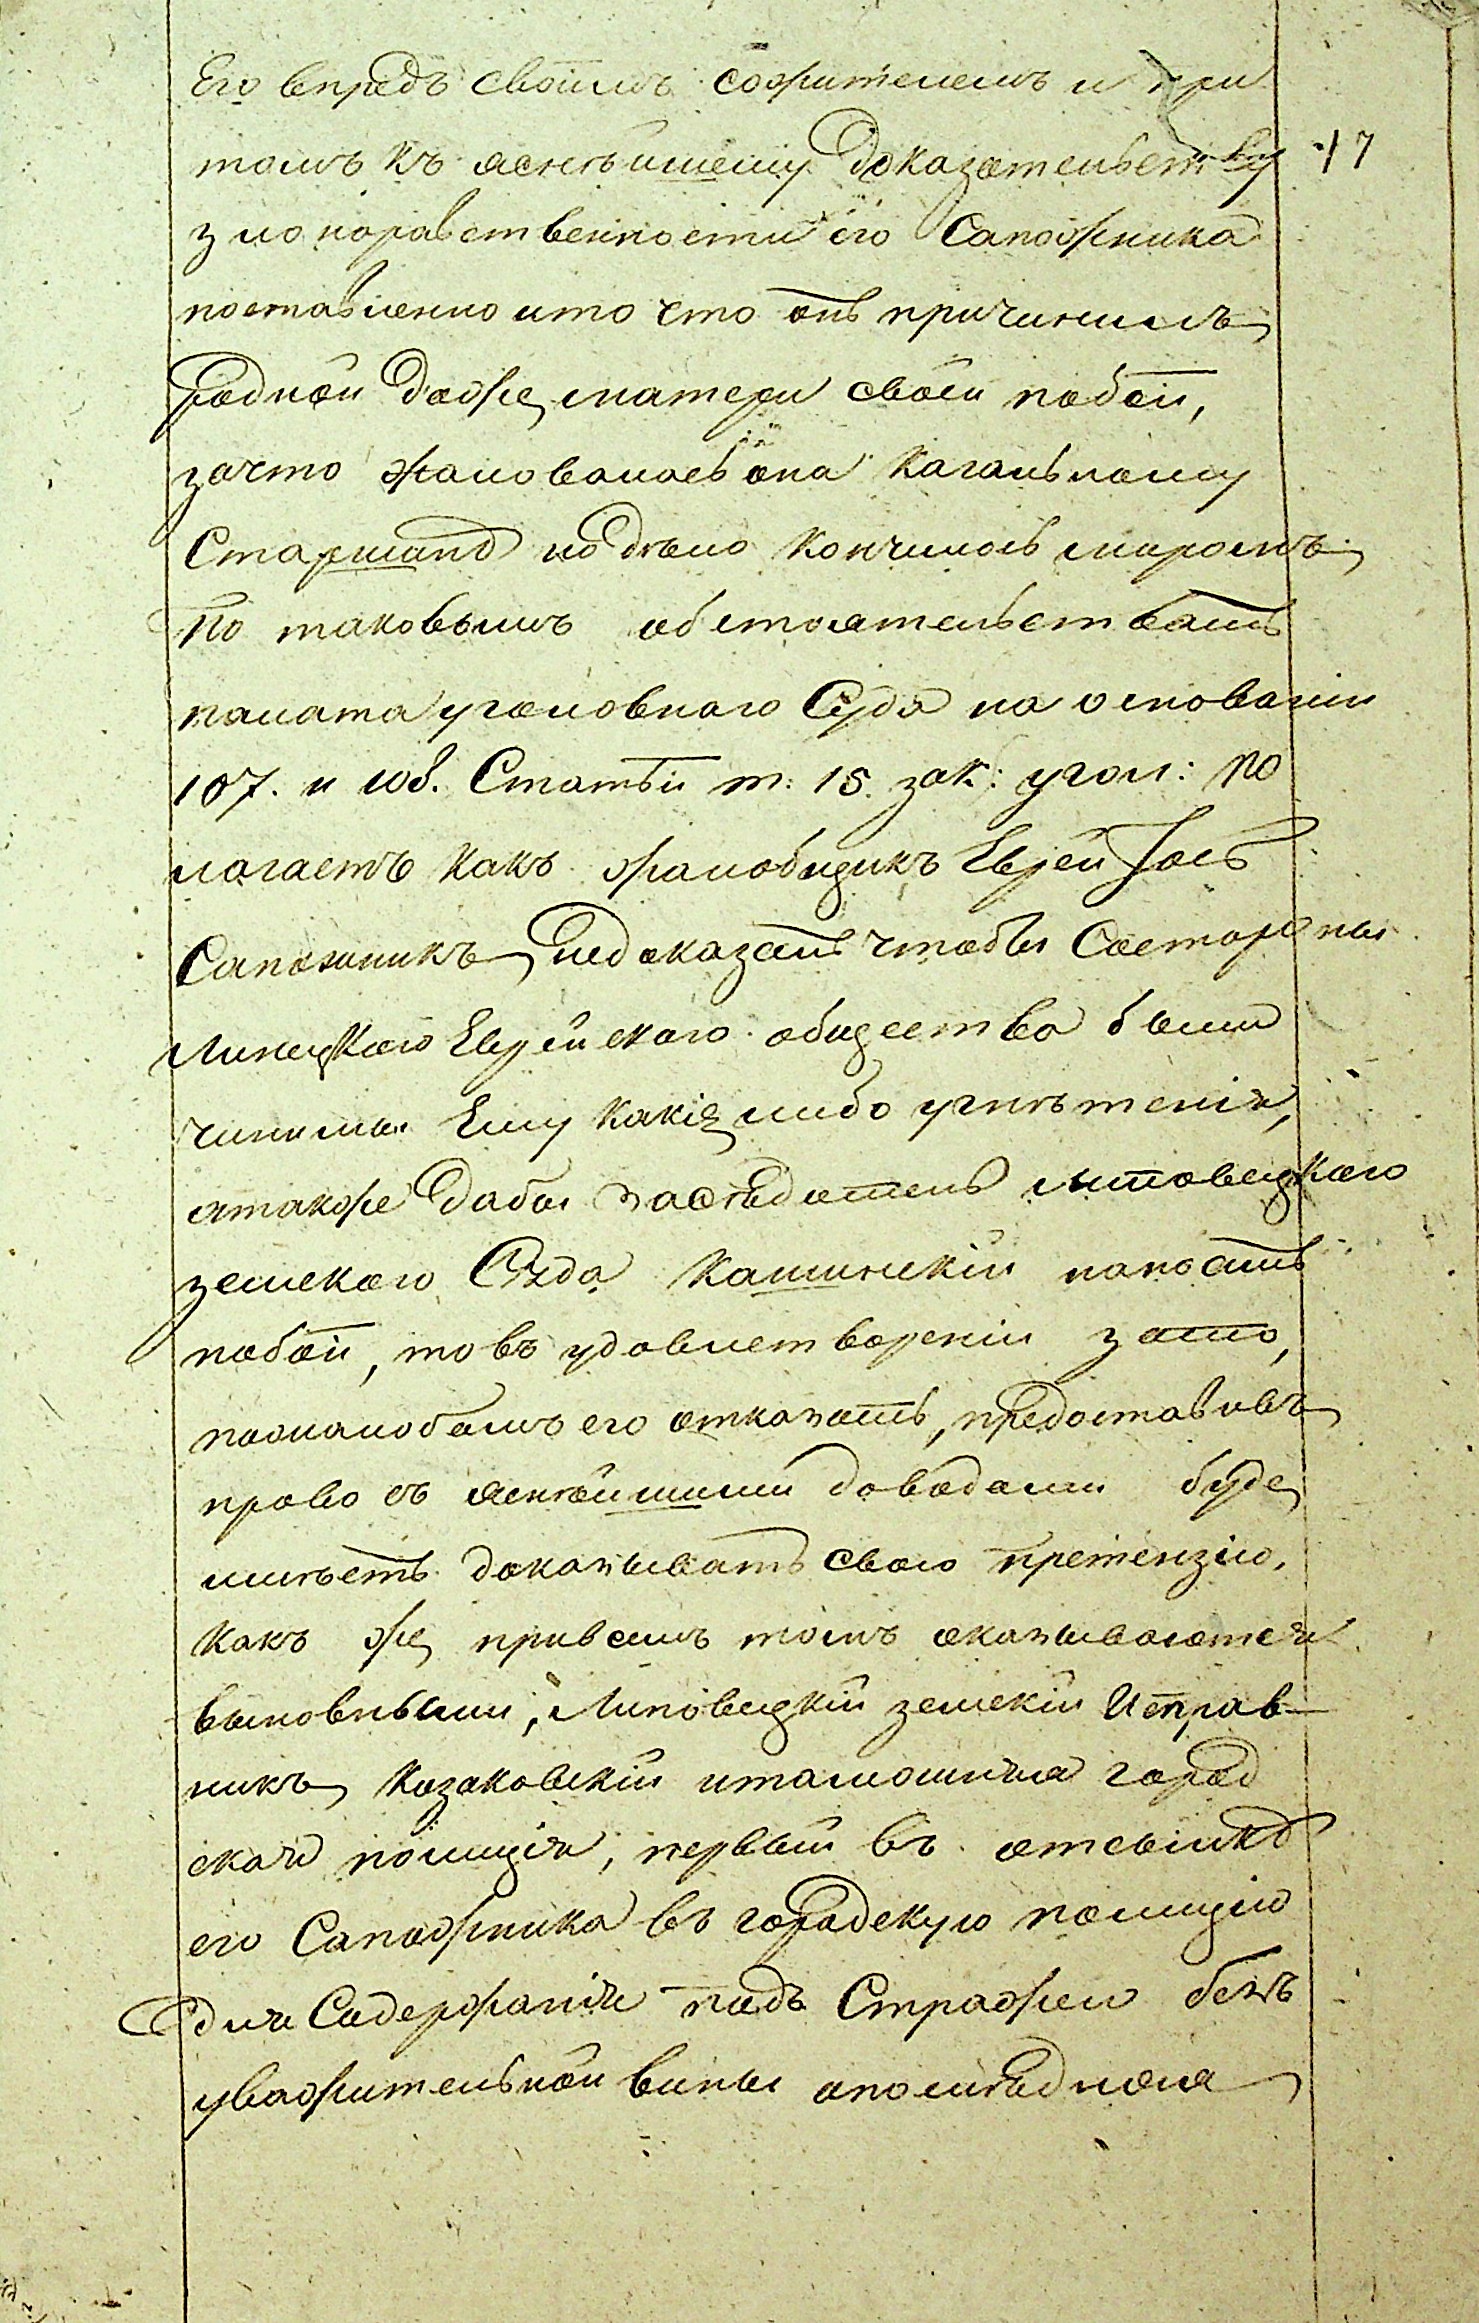 Его впредъ своимъ сожителемъ и при
томъ къ яснѣйшему доказательству 17
злонаравственности его Сапожника
поставленно ито что онъ причинилъ
родной даже матери своей побои,
зачто жаловалась она Кагальному
Старшинѣ но дѣло кончилось миромъ
По таковымъ обстоятельствамъ
палата уголовнаго Суда на основании
107. и 108. Статьи т: 15. зак: угол: по
лагаетъ какъ жалобщикъ Еврей Іось
Сапожникъ недоказалъ чтобы Состороны
Линецкаго Еврейскаго общества были
чинимы Ему какія либо угнѣтенія,
атакже дабы засѣдатель липовецкаго
земскаго Суда Калинскій наносилъ
побои, то въ удовлетвореніи зато,
пожалобамъ его отказать, предоставивъ
право съ яснѣйшими доводами буде
имѣетъ доказывать свою претензію,
какъ же привсемъ томъ оказываются
виновными, Липовецкій земскій Исправ-
никъ Козаковскій итамошняя город
ская полиція, первый въ отсылкѣ
его Сапожника въ городскую полицію
для Содержанія подъ Стражею безъ
уважительной вины апослѣдняя